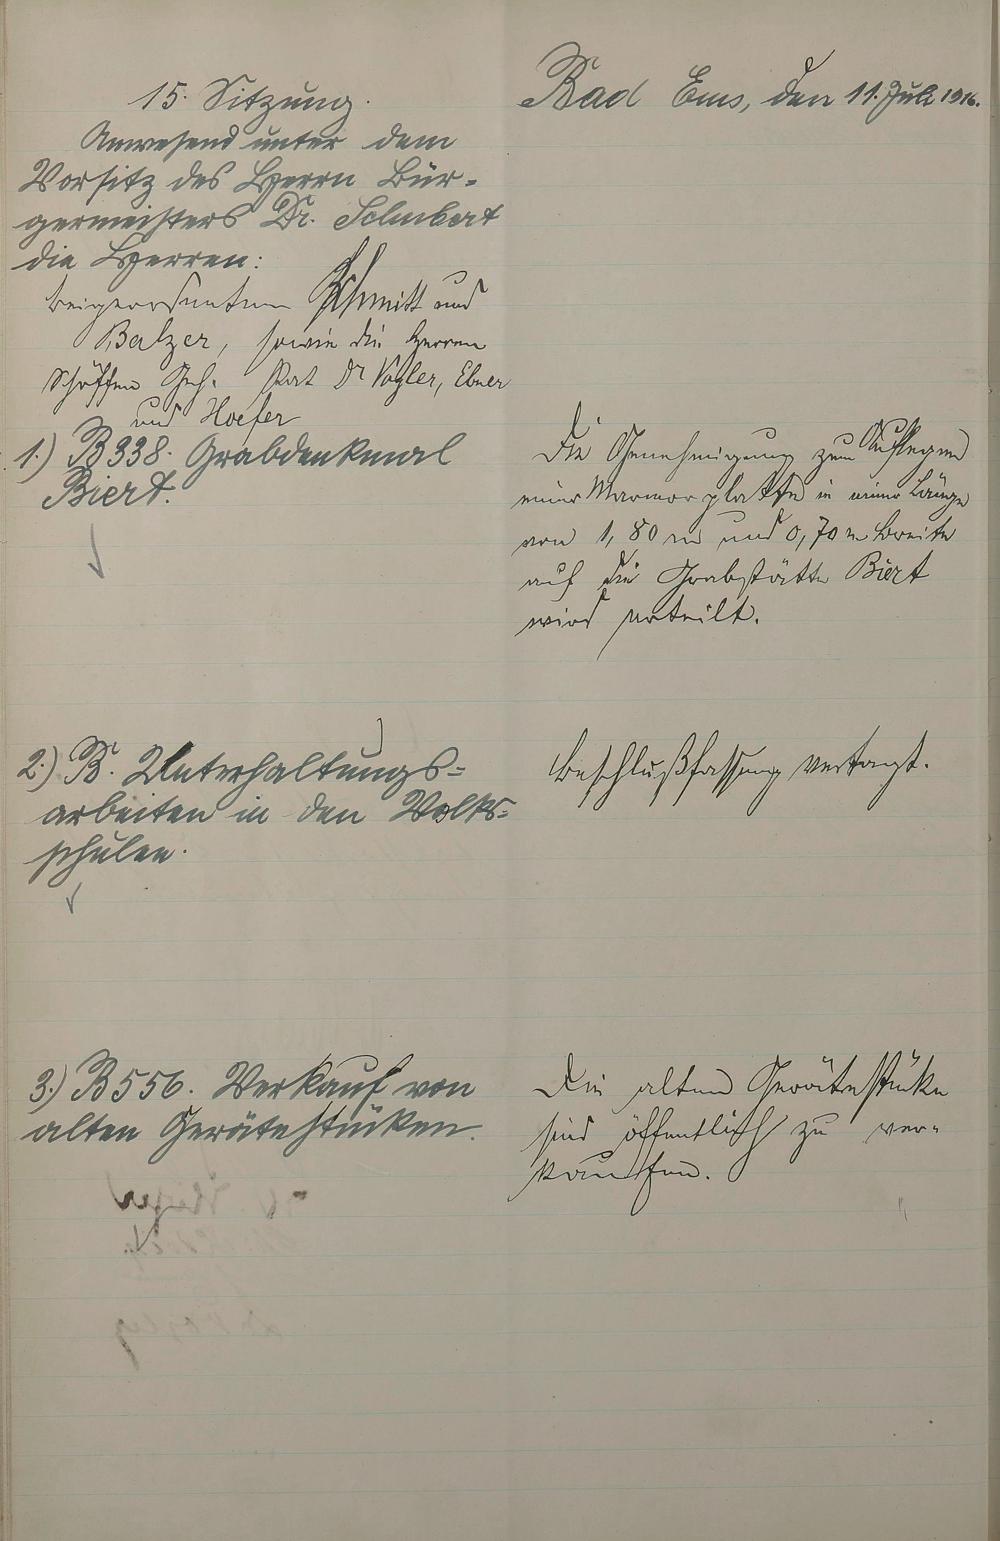 15. Sitzung.
Bad Ems, den 11. Juli 1916.
Anwesend unter dem
Vorsitz des Herrn Bür-
germeisters Dr. Schubert
die Herren:
Beigeordneten Schmitt und
Balzer, sowie die Herren
Schöffen Geh. Rat Dr Vogler, Ebner
und Hoefer
1.) B 338. Grabdenkmal
Biert.
Die Genehmigung zum Auflegen
einer Marmorplatte in einer Länge
von 1,80 m und 0,70 m Breite
auf die Grabstätte Biert
wird erteilt.
2.) B. Unterhaltungs-
arbeiten in den Volks-
schulen.
Beschlußfassung vertagt.
3.) B 556. Verkauf von
alten Gerätestücken.
Die alten Gerätestücke
sind öffentlich zu ver-
kaufen.